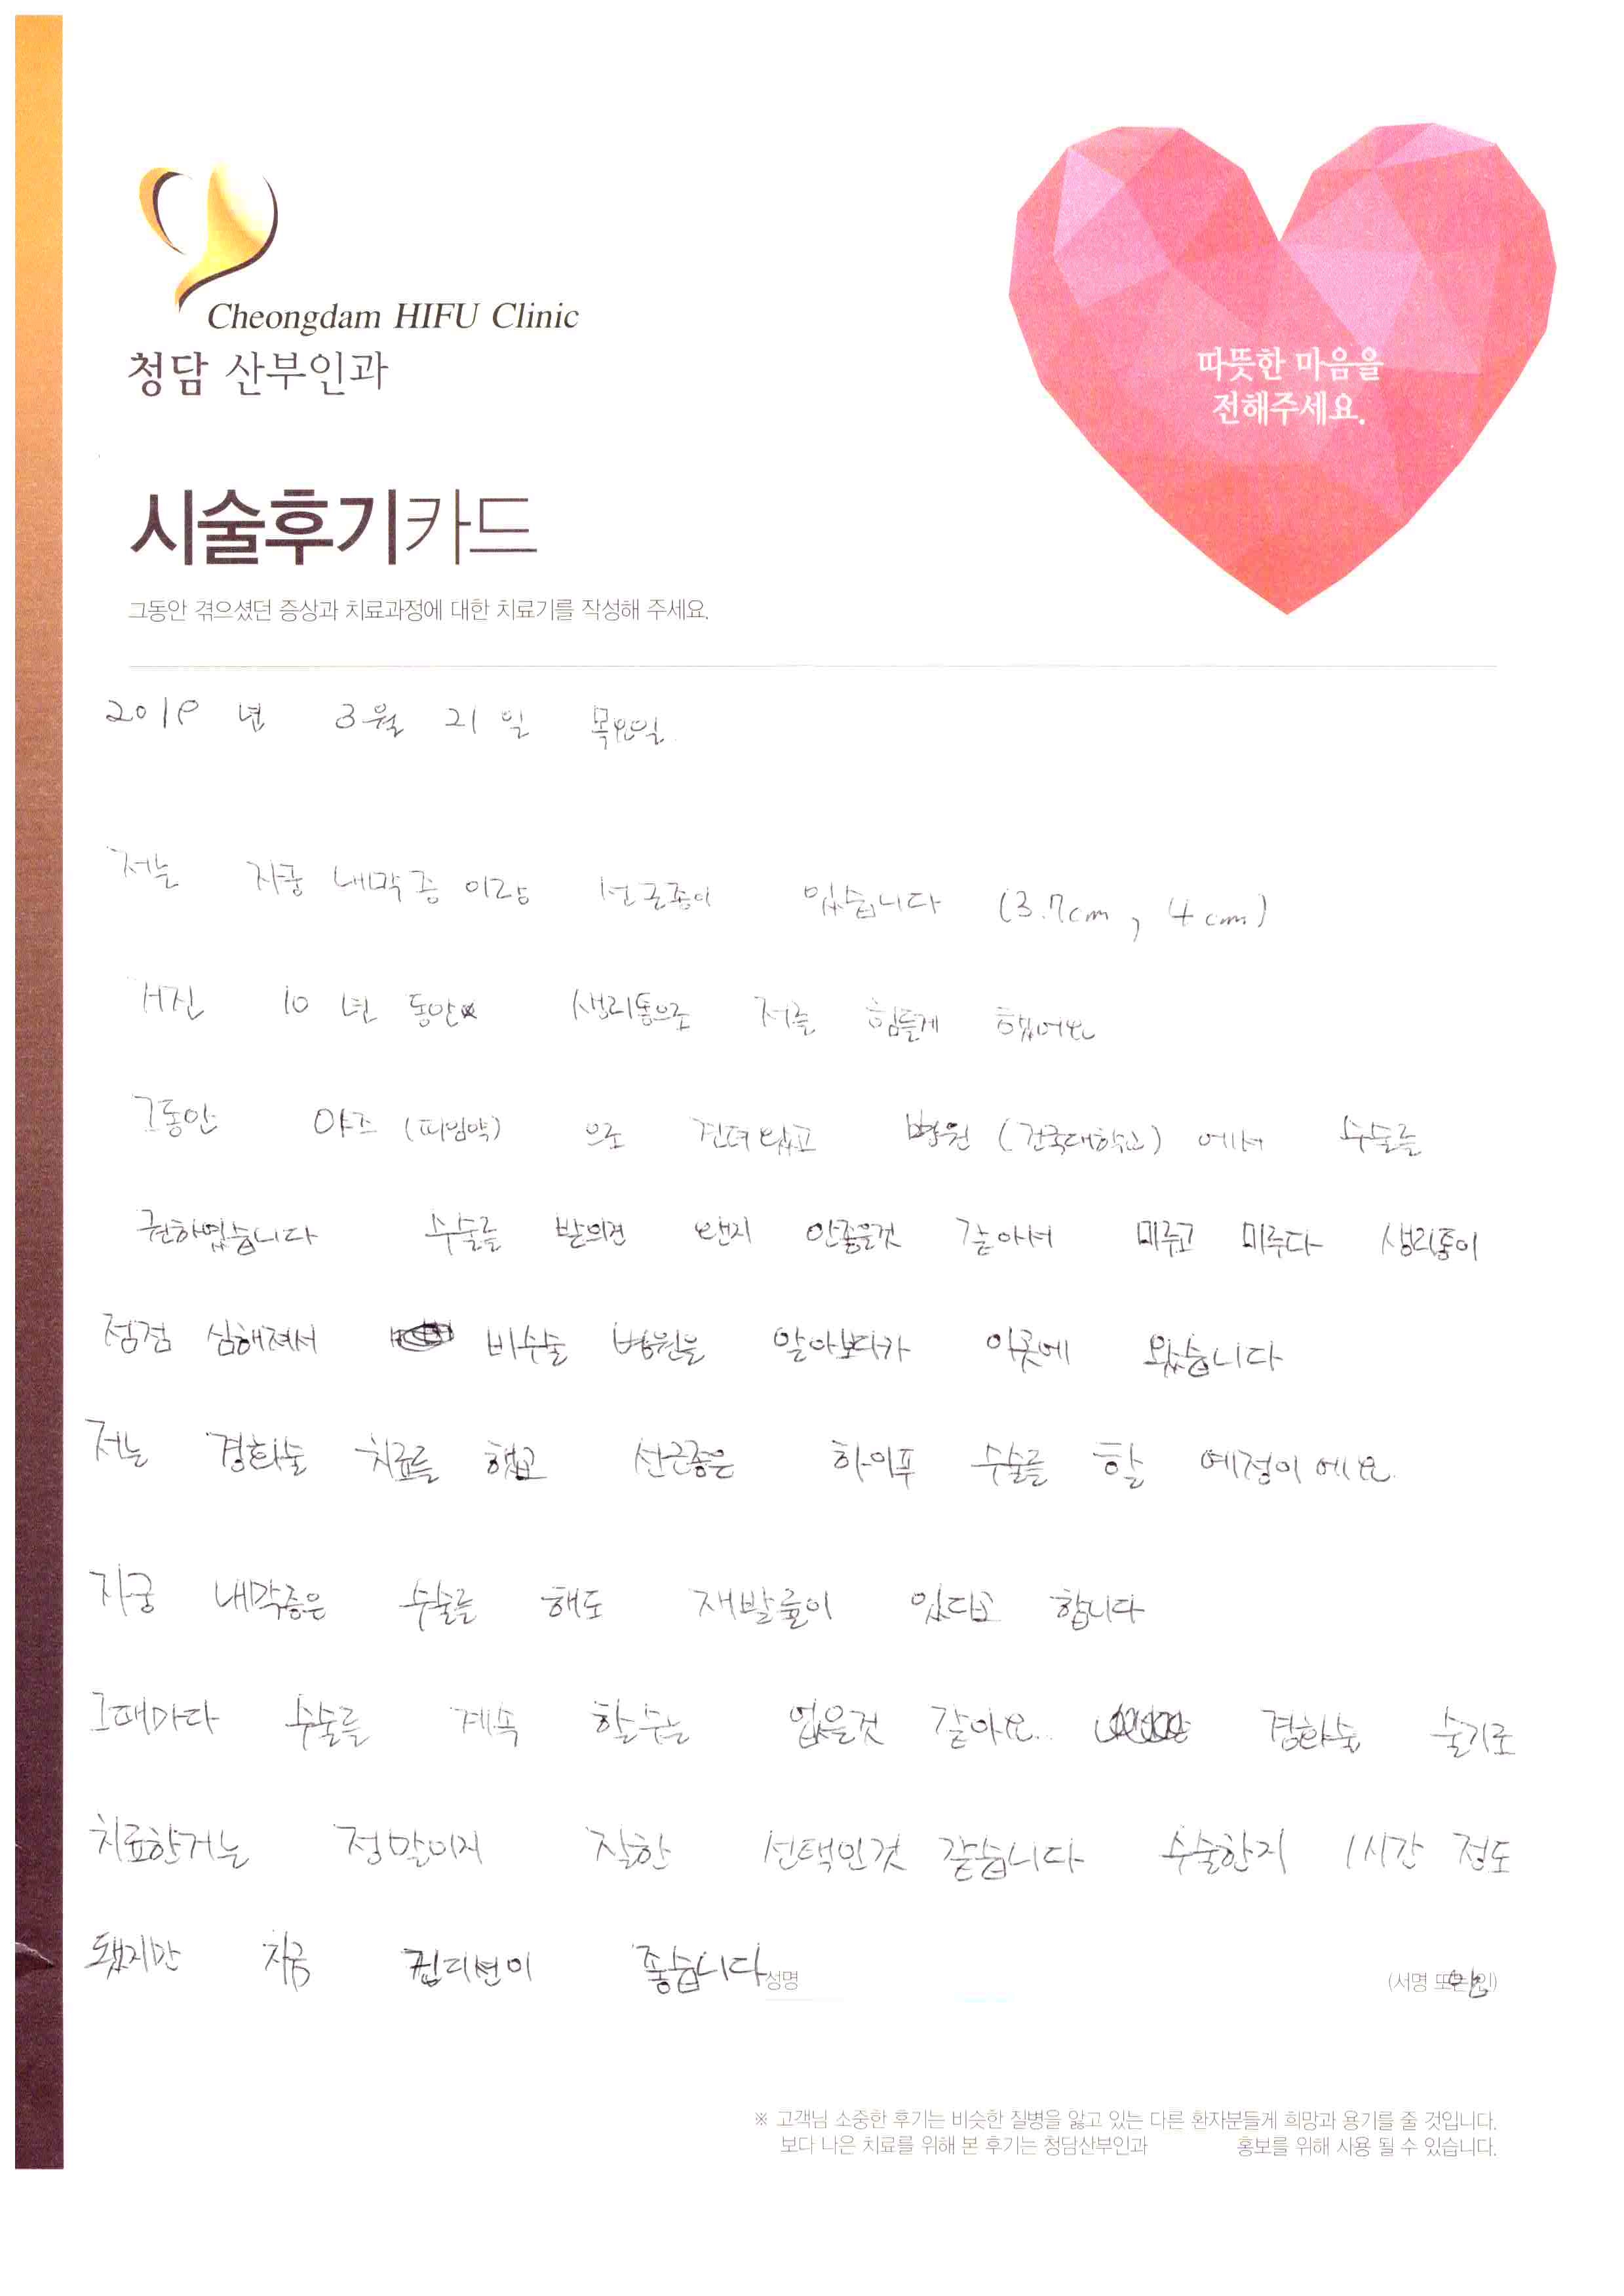 Cheongdam HIFU Clinic
청담 산부인과
따뜻한 마음을
전해주세요.
시술후기카드
그동안 겪으셨던 증상과 치료과정에 대한 치료기를 작성해 주세요.
2019 년 3월 21 일 목요일
저는 자궁 내막증 이랑 선근종이 있습니다 (3.7cm, 4cm)
10 년 동안 생리통으로 저를 힘들게 했어요
그동안 야즈 (피임약) 으로 견뎌 왔고 병원 (건국대학교) 에서 수술을
권하였습니다 수술을 받으면 왠지 안좋을것 같아서 미루고 미루다 생리통이
점점 심해져서 비수술 병원을 알아보다가 이곳에 왔습니다
저는 경화술 치료를 했고 선근종은 하이푸 수술을 할 예정이에요.
자궁 내막증은 수술을 해도 재발률이 있다고 합니다
그때마다 수술을 계속 할수는 없을것 같아요.. 경화술 술기로
치료한거는 정말이지 잘한 선택인것 같습니다 수술한지 1시간 정도
됐지만 지금 컨디션이 좋습니다
성명 (서명 또는 인)
※ 고객님 소중한 후기는 비슷한 질병을 앓고 있는 다른 환자분들게 희망과 용기를 줄 것입니다.
보다 나은 치료를 위해 본 후기는 청담산부인과 홍보를 위해 사용 될 수 있습니다.